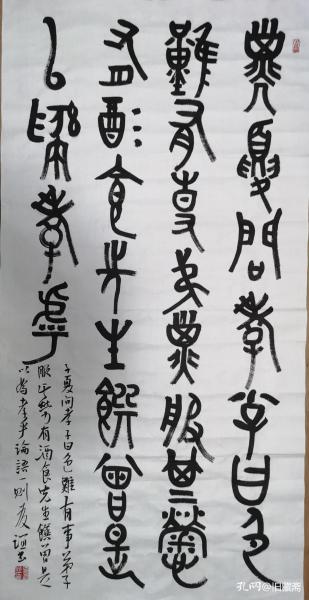 子夏問孝子曰色
難有事弟子服其勞
有酒食先生饌曾是
以為孝乎
子夏问孝子曰色難有事弟子
服其勞有酒食先生饌曾是
以為孝乎論語一則
孔网@旧藏斋